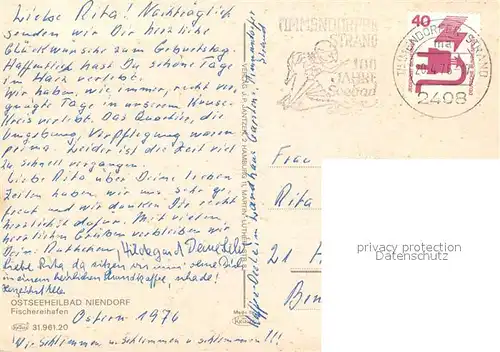 Liebe Rita! Nachträglich
senden wir Dir herzliche
Glückwünsche zum Geburtstag.
Hoffentlich hast Du schöne Tage
im Harz verlebt.
Wir haben, wie immer, recht ver-
gnügte Tage in unserem Hause-
Kreis verlebt. Das Quartier, die
Umgebung, Verpflegung waren
prima. Leider ist die Zeit viel
zu schnell vergangen.
Liebe Rita über Deine lieben
Zeilen haben wir uns sehr ge-
freut und wir danken Dir recht
herzlichst dafür. Mit vielen
herzlichen Grüßen verbleiben wir
Deine Ruthchen, Hildegard
Liebe Rita da sitzen wir nun ohne Dich
in einem herrlichen Strandkaffee, schade!
OSTSEEHEILBAD NIENDORF
Fischereihafen
31.961.20
Ostern 1976
Wir schlemmen u. schlemmen u schlemmen!!!
TIMMENDORFER
STRAND
100
JAHRE
Seebad
TIMMENDORFER STRAND
2408
40
Frau
Rita
21 H
privacy protection
Datenschutz